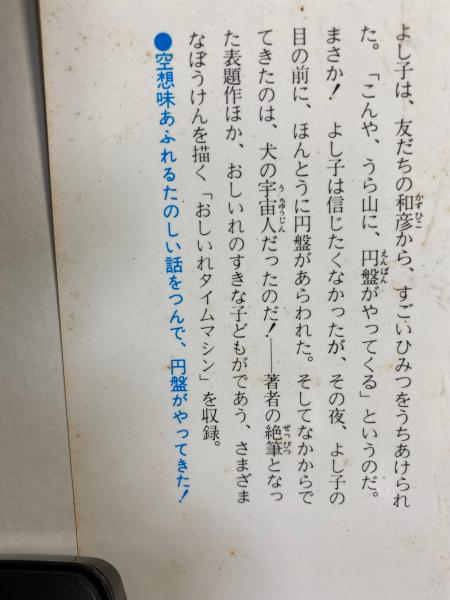 よし子は、友だちの和彦から、すごいひみつをうちあけられ
た。「こんや、うら山に、円盤がやってくる」というのだ。
まさか! よし子は信じたくなかったが、その夜、よし子の
目の前に、ほんとうに円盤があらわれた。そしてなかからで
てきたのは、犬の宇宙人だったのだ!――著者の絶筆となっ
た表題作ほか、おしいれのすきな子どもがであう、さまざま
なぼうけんを描く「おしいれタイムマシン」を収録。
●空想味あふれるたのしい話をつんで、円盤がやってきた!